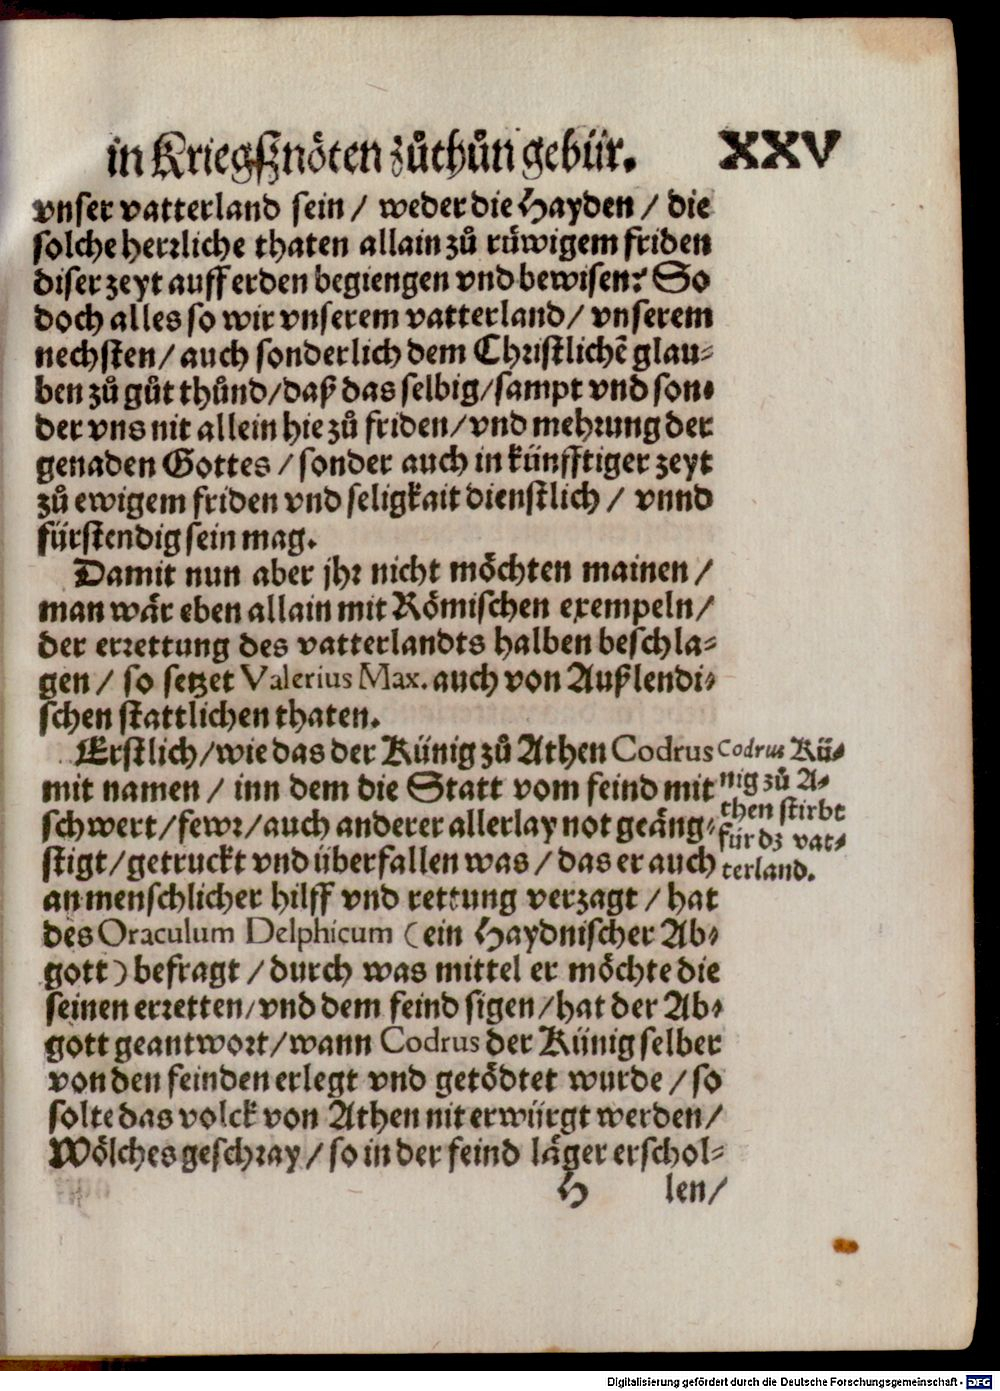 in Kriegßnöten zůthůn gebür. XXV
vnser vatterland sein / weder die Hayden / die
solche herrliche thaten allain zů rüwigem friden
diser zeyt auff erden begiengen vnd bewisen? So
doch alles so wir vnserem vatterland / vnserem
nechsten / auch sonderlich dem Christlichẽ glau-
ben zů gůt thůnd / daß das selbig / sampt vnd son-
der vns nit allein hie zů friden / vnd mehrung der
genaden Gottes / sonder auch in künfftiger zeyt
zů ewigem friden vnd seligkait dienstlich / vnnd
fürstendig sein mag.
Damit nun aber jhr nicht möchten mainen /
man wär eben allain mit Römischen exempeln /
der errettung des vatterlandts halben beschla-
gen / so setzet Valerius Max. auch von Außlendi-
schen stattlichen thaten.
Erstlich / wie das der Künig zů Athen Codrus
mit namen / inn dem die Statt vom feind mit
schwert / fewr / auch anderer allerlay not geäng-
stigt / getruckt vnd überfallen was / das er auch
an menschlicher hilff vnd rettung verzagt / hat
des Oraculum Delphicum (ein Haydnischer Ab-
gott) befragt / durch was mittel er möchte die
seinen erretten / vnd dem feind sigen / hat der Ab-
gott geantwort / wann Codrus der Künig selber
von den feinden erlegt vnd getödtet wurde / so
solte das volck von Athen nit erwürgt werden /
Wölches geschray / so in der feind läger erschol-
H len /
Codrus Kü-
nig zů A-
then stirbt
für dz vat-
terland.
Digitalisierung gefördert durch die Deutsche Forschungsgemeinschaft - DFG